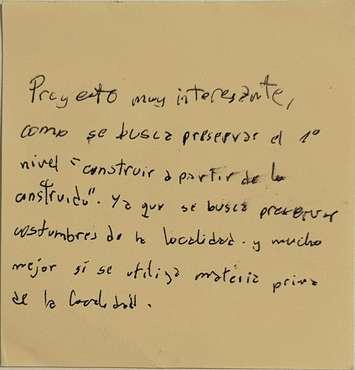 Proyecto muy interesante,
como se busca preservar el 1º
nivel "construir a partir de lo
construido". Ya que se busca preservar
costumbres de la localidad. y mucho
mejor si se utiliza materia prima
de la localidad.